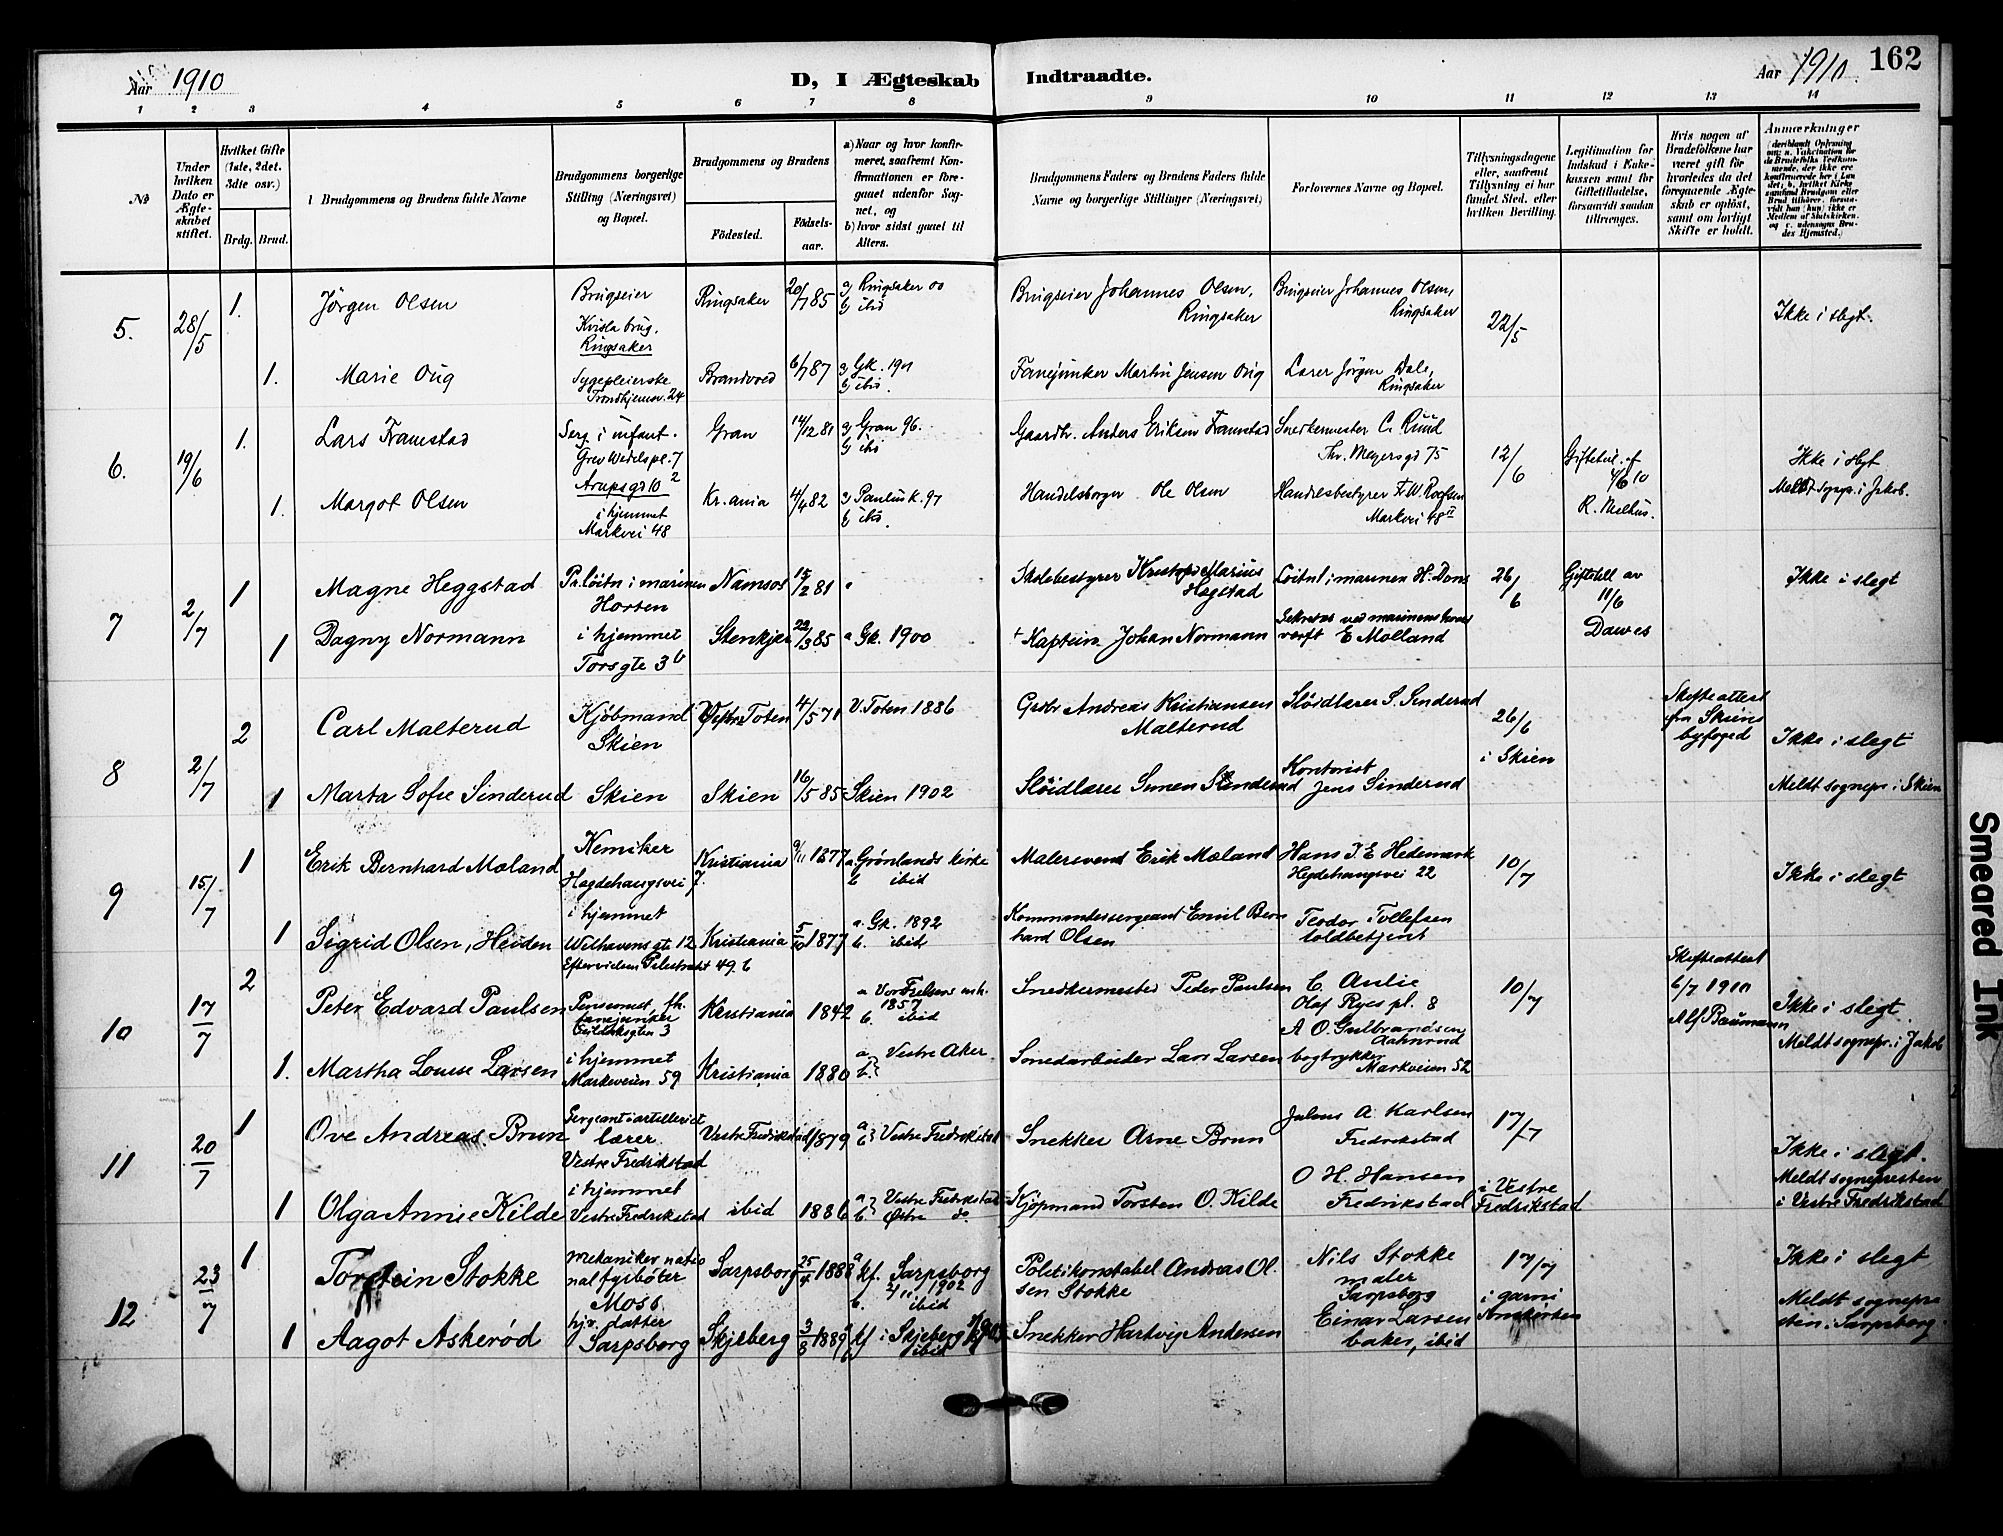 Aar 1910
D, I Ægteskab Indtraadte.
Aar 1910
162
1 2 3 4 5 6 7 8 9 10 11 12 13 14
No
Under hvilken Dato er Ægteskabet stiftet.
Hvilket Gifte (1ste, 2det, 3die osv.)
Brdg. Brud.
Brudgommens og Brudens fulde Navne
Brudgommens borgerlige Stilling (Næringsvei) og Bopæl.
Brudgommens og Brudens
Födested. Födselsaar.
a) Naar og hvor konfirmeret, saafremt Konfirmationen er foregaaet udenfor Sognet, og
b) hvor sidst gaaet til Alters.
Brudgommens Faders og Brudens Faders fulde Navne og borgerlige Stillinger (Næringsvei)
Forlovernes Navne og Bopæl.
Tillysningsdagene eller, saafremt Tillysning ei har fundet Sted, efter hvilken Bevilling.
Legitimation for Indskud i Enkekassen samt for Giftetilladelse, forsaavidt saadan tiltrænges.
Hvis nogen af Brudefolkene har været gift för hvorledes da det foregaaende Ægteskab er oplöst, samt om lovligt Skifte er holdt.
Anmærkninger
5.
28/5
1.
Jörgen Olsen
Brugseier
Kvisla brug.
Ringsaker
Ringsaker
20/7 85
a) Ringsaker 00
b) ibid
Brugseier Johannes Olsen,
Ringsaker
Brugseier Johannes Olsen,
Ringsaker
22/5
Ikke i slegt.
1.
Marie Oug
Sygepleierske
Trondhjemsv. 24
Brandvod
6/7 87
b) ibid.
Fanejunker Martin Jensen Oug
Lærer Jörgen Dale,
Ringsaker
6.
19/6
1.
Lars Framstad
Serg. i infant.
Grev Wedels pl. 7
Gran
14/12 81
a) Gran 96.
b) ibid
Gaardbr. Anders Eriksen Framstad
Snedkermester C. Ruud
Thv. Meyersgd 75
12/6
Giftetil. af
4/6 10
R. Melhus.
Ikke i slegt
Meldt sognep. i Jakob.
1.
Margot Olsen
Arupsgd 10 2
i hjemmet
Markvei 48
Kr.ania
4/4 82
a) Paulus k. 97
b) ibid.
Handelsborger Ole Olsen
Markvei 48 II
7
2/7
1
Magne Heggstad
Pr. löitn i marinen
Horten
Namsos
15/2 81
Skolebestyrer Kristofer Marius
Hegstad
Löitnt i marinen H. Dons
26/6
Giftetill av
11/6
Dawes
Ikke i slegt
1
Dagny Normann
i hjemmet
Torsgte 3b
Stenkjær
22/3 85
a Gk. 1900
† Kaptein Johan Normann
Sekretær ved marinens hoved
verft E Molland
8
2/7
2
Carl Malterud
Kjöbmand
Skien
Vestre Toten
4/5 71
V. Toten 1886
Gbr Andreas Kristiansen
Malterud
Slöidlærer S. Sinderud
26/6
i Skien
Skifteattest
fra Skiens
byfoged
Ikke i slegt
Meldt sognepr. i Skien
1
Marta Sofie Sinderud
Skien
Skien
16/5 85
Skien 1902
Slöidlærer Simen Sinderud
Kontorist
Jens Sinderud
9
15/7
1
Erik Bernhard Mæland
Kemiker
Hegdehaugsvei 7.
Kristiania
9/11 1877
a Grønlands kirke
b ibid
Malersvend Erik Mæland
Hans J. E Hedemark
Hegdehaugsvei 22
10/7
Ikke i slegt
1
Sigrid Olsen, Heiden
i hjemmet
Welhavensgt 12
Eftervielsen Pilestrædet 49. b
Kristiania
5/10 1877
a. Gk. 1892
b. ibid
Kommandersergeant Emil Bern
hard Olsen
Teodor Tollefsen
toldbetjent
10
17/7
2
Peter Edvard Paulsen
Pensionist, fh.
fanejunker
Kristiania
1842
a Vor Frelsers
1857
b. ibid
Snedkermester Peder Paulsen
C. Aulie
Olaf Ryes pl. 8
10/7
Skifteattest
6/7 1910
Alf Baumann
Ikke i slegt.
Meldt sognepr. i Jakob
1.
Martha Louise Larsen
i hjemmet
Markveien 59
Kristiania
1880
a
b.} Vestre Aker
Smedarbeider Lars Larsen
A O. Gulbrandsen
bogtrykker
Markveien 52
11
20/7
1
Ove Andreas Brun
Sergeant i artilleriet
lærer
Vestre Fredrikstad
Vestre Fredrikstad
1879
a
b} Vestre Fredrikstad
Snekker Arne Brun
Julius A Karlsen
Fredrikstad
17/7
Ikke i slegt.
Meldt sognepresten
i Vestre Fredrikstad
1
Olga Annie Kilde
i hjemmet
Vestre Fredrikstad
ibid
1886
a
b} Vestre Fredrikstad
Østre do.
Kjöpmand Torsten O. Kilde
O H. Hansen
Fredrikstad
i Vestre
Fredrikstad
12
23/7
1
Torstein Stokke
Mekaniker natio
nal fysböter
Moss
Sarpsborg
25/4 1888
a kf. Sarpsborg
1902
b. ibid
Politikonstabel Andreas Ol
sen Stokke
Nils Stokke
maler
Sarpsborg
17/7
i garni
sonskirken
Ikke i slegt
Meldt sognepre
sten i Sarpsborg.
1
Aagot Askerød
hjv. datter
Sarpsborg
Skjeberg
3/8 1889
a kf i Skjeberg
b ibid
Snekker Hartvig Andersen
Einar Larsen
baker, ibid
Smeared Ink